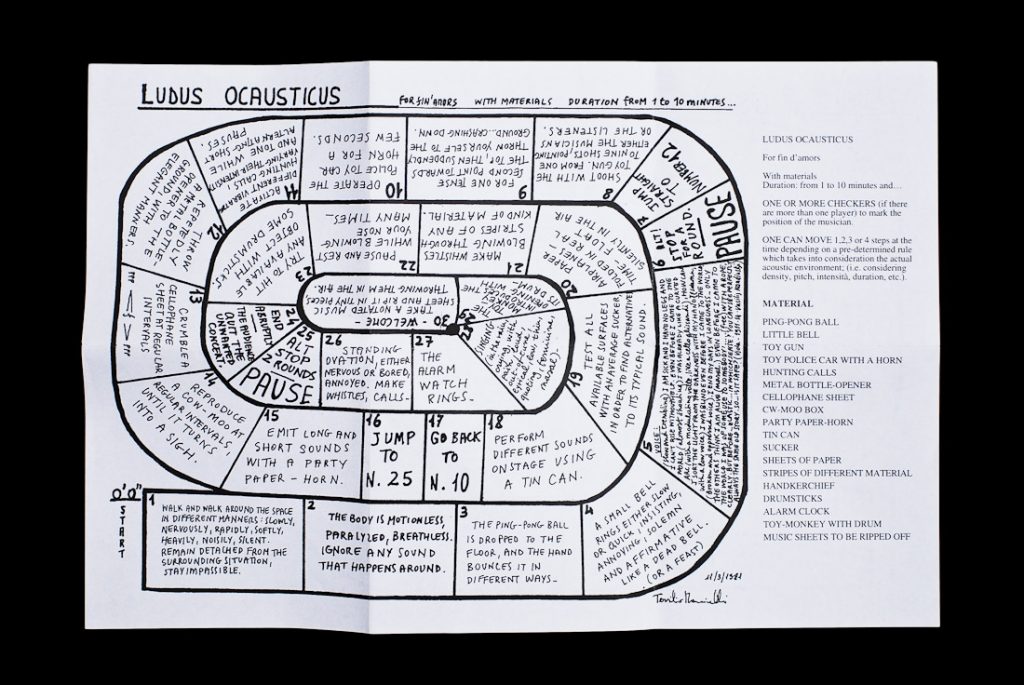 LUDUS OCAUSTICUS
FOR fiN'AMORS WITH MATERIALS DURATION fROM 1 TO 10 MINUTES...
0'0"
START
1
WALK AND WALK AROUND THE SPACE
IN DIFFERENT MANNERS: SLOWLY,
NERVOUSLY, RAPIDLY, SOFTLY,
HEAVILY, NOISILY, SILENT.
REMAIN DETACHED FROM THE
SURROUNDING SITUATION,
STAY IMPASSIBLE.
2
THE BODY IS MOTIONLESS,
PARALYLED, BREATHLESS.
IGNORE ANY SOUND
THAT HAPPENS AROUND.
3
THE PING-PONG BALL
IS DROPPED TO THE
FLOOR, AND THE HAND
BOUNCES IT IN
DIFFERENT WAYS_
4
A SMALL BELL
RINGS EITHER SLOW
OR QUICK, INSISTING,
ANNOYING, SOLEMN
AND AFFIRMATIVE
LIKE A DEAD BELL.
(OR A FEAST)
5
VOICE:
6 ALT!
STOP
FOR A
ROUND.
PAUSE
7
JUMP
STRAIGHT
TO
NUMBER 12
8
SHOOT WITH THE
TOY GUN. FROM ONE
TO NINE SHOTS, POINTING
EITHER THE MUSICIANS
OR THE LISTENERS.
9
FOR ONE TENSE
SECOND POINT TOWARDS
THE TOP, THEN, SUDDENLY
THROW YOURSELF TO THE
GROUND... CRASHING DOWN.
10
OPERATE THE
POLICE TOY CAR
HORN FOR A
FEW SECONDS.
11
ACTIVATE
DIFFERENT VIBRATE
HUNTING-CALLS,
VARYING THEIR INTENSITY
AND TONE WHILE
ALTERNATING SHORT
PAUSES.
12
THROW
REPEATEDLY
A METAL BOTTLE-
OPENER TO THE
GROUND WITH
ELEGANT MANNERS.
13
CRUMBLE A
CELLOPHANE
SHEET AT REGULAR
INTERVALS
14
REPRODUCE
A COW-MOO AT
REGULAR INTERVALS,
UNTIL IT TURNS
INTO A SIGH.
15
EMIT LONG AND
SHORT SOUNDS
WITH A PARTY
PAPER-HORN.
16
JUMP
TO
N. 25
17
GO BACK
TO
N. 10
18
PERFORM
DIFFERENT SOUNDS
ONSTAGE USING
A TIN CAN.
19
TEST ALL
AVAILABLE SURFACES
WITH AN AVERAGE SUCKER
IN ORDER TO FIND ALTERNATIVE
TO ITS TYPICAL SOUND.
20
PAPER
AIRPLANES-
SOME-FOLDED IN REAL
TIME-FLOAT
SILENTLY IN THE AIR
21
MAKE WHISTLES
BLOWING THROUGH
STRIPES OF ANY
KIND OF MATERIAL.
22
PAUSE AND REST
WHILE BLOWING
YOUR NOSE
MANY TIMES_
23
TRY TO HIT
ANY AVAILABLE
OBJECT WITH
SOME DRUMSTICKS.
24
END
ABRUPTLY
THE AUDIENCE
QUIT THE
UNWANTED
CONCERT.
25
ALT
STOP
2 ROUNDS
PAUSE
26
STANDING
OVATION, EITHER
NERVOUS OR BORED,
ANNOYED. MAKE
WHISTLES, CALLS_
27
THE
ALARM
WATCH
RINGS_
28
SINGING
29
30 - WELCOME -
TAKE A NOTATED MUSIC
SHEET AND RIP IT IN TINY PIECES
THROWING THEM IN THE AIR.
21/3/1981
LUDUS OCAUSTICUS
For fin d'amors
With materials
Duration: from 1 to 10 minutes and…
ONE OR MORE CHECKERS (if there
are more than one player) to mark the
position of the musician.
ONE CAN MOVE 1,2,3 or 4 steps at the
time depending on a pre-determined rule
which takes into consideration the actual
acoustic environment; (i.e. considering
density, pitch, intensità, duration, etc.).
MATERIAL
PING-PONG BALL
LITTLE BELL
TOY GUN
TOY POLICE CAR WITH A HORN
HUNTING CALLS
METAL BOTTLE-OPENER
CELLOPHANE SHEET
CW-MOO BOX
PARTY PAPER-HORN
TIN CAN
SUCKER
SHEETS OF PAPER
STRIPES OF DIFFERENT MATERIAL
HANDKERCHIEF
DRUMSTICKS
ALARM CLOCK
TOY-MONKEY WITH DRUM
MUSIC SHEETS TO BE RIPPED OFF